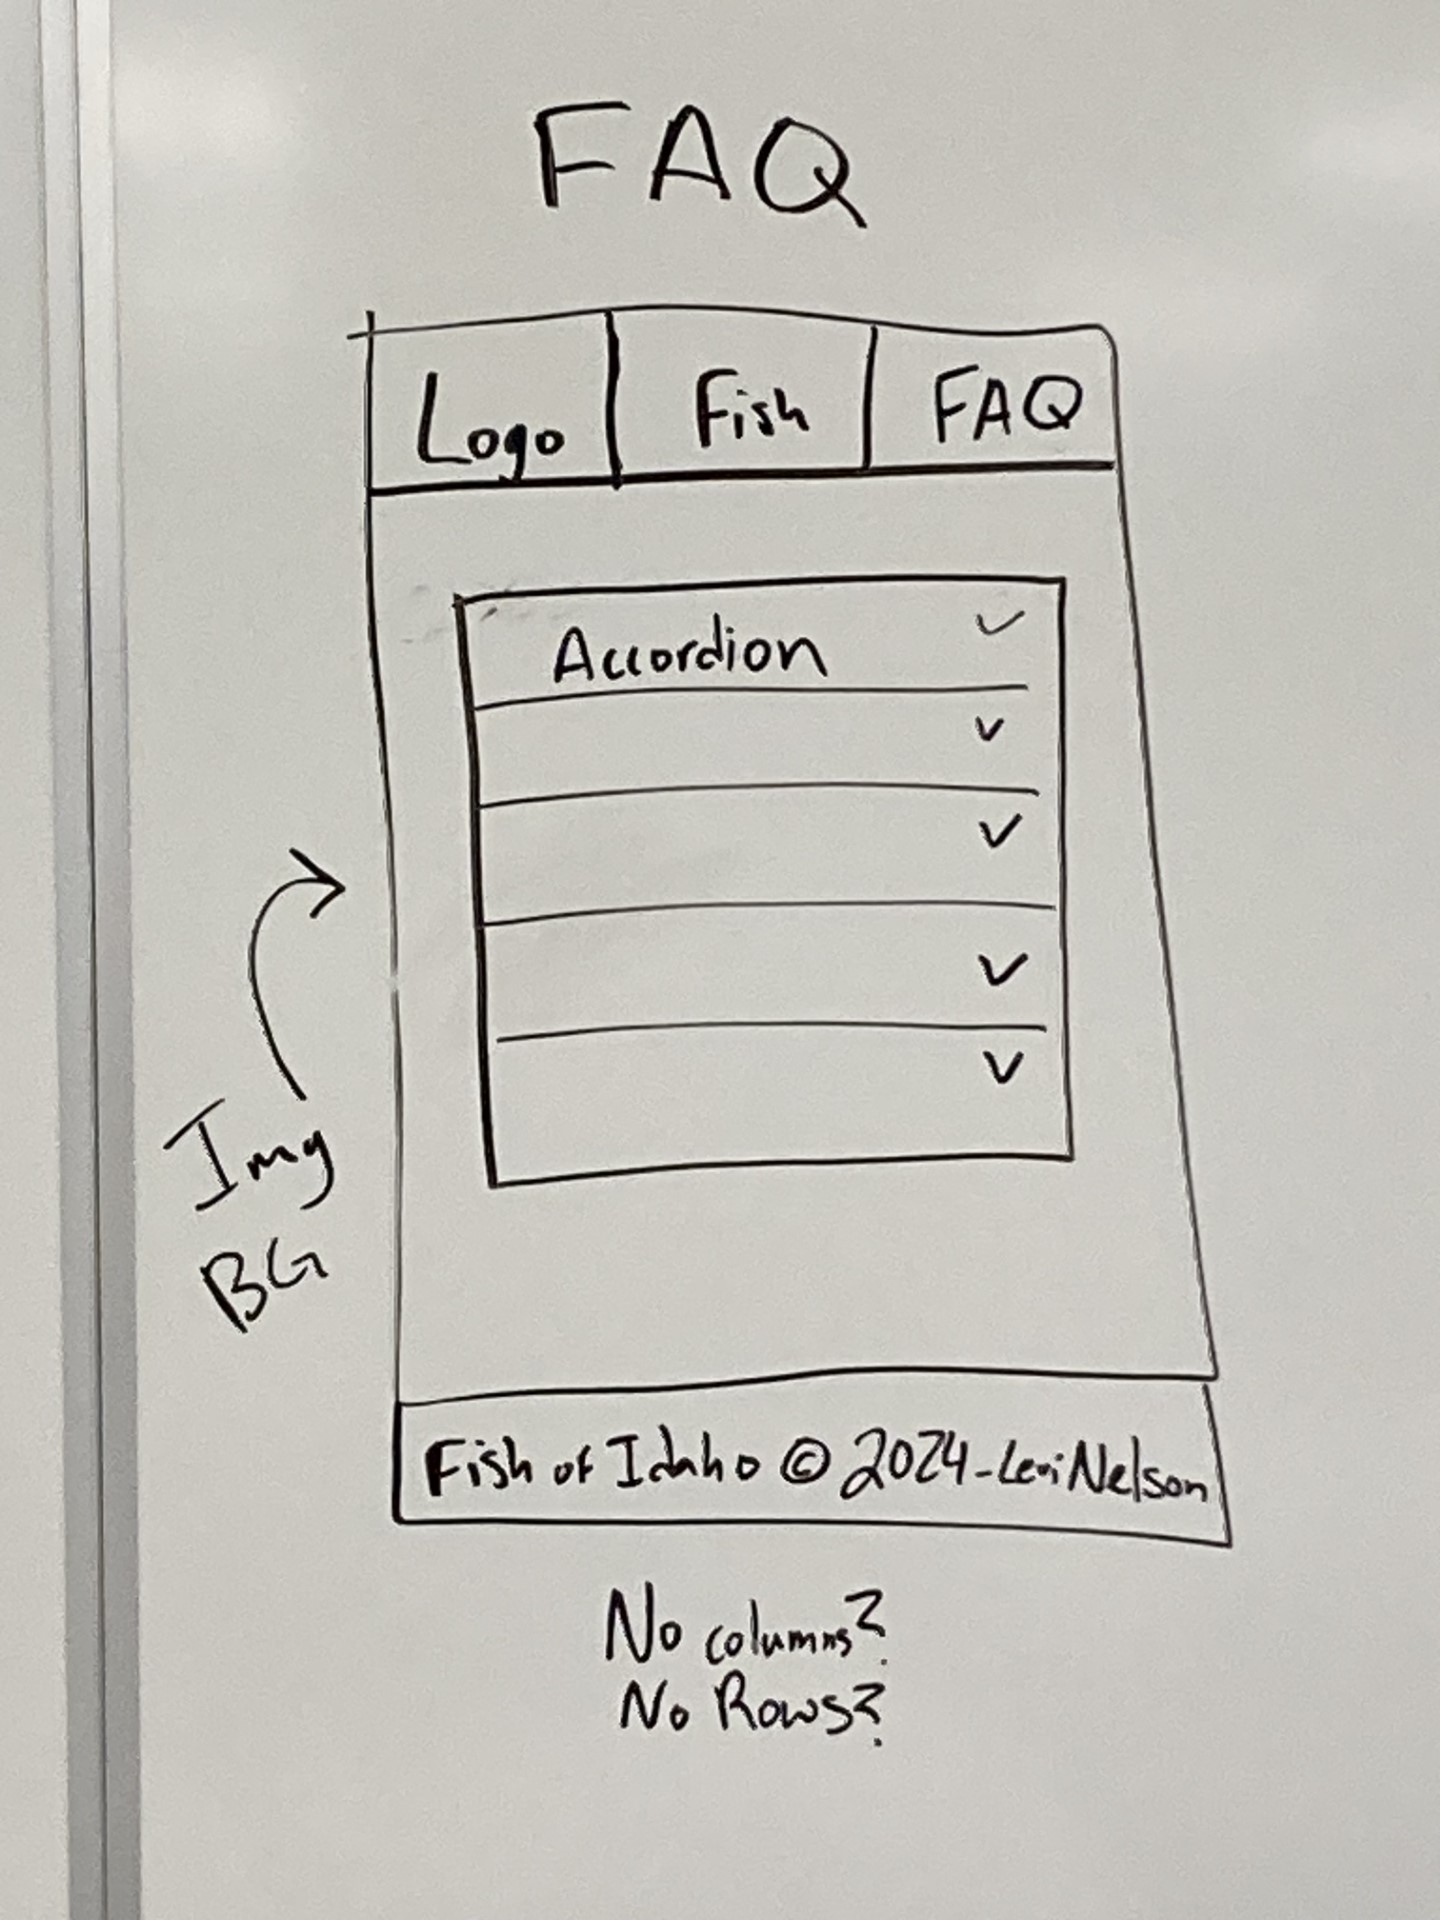 FAQ
Logo Fish FAQ
Accordion
Img
BG
Fish of Idaho © 2024-Levi Nelson
No columns?
No Rows?